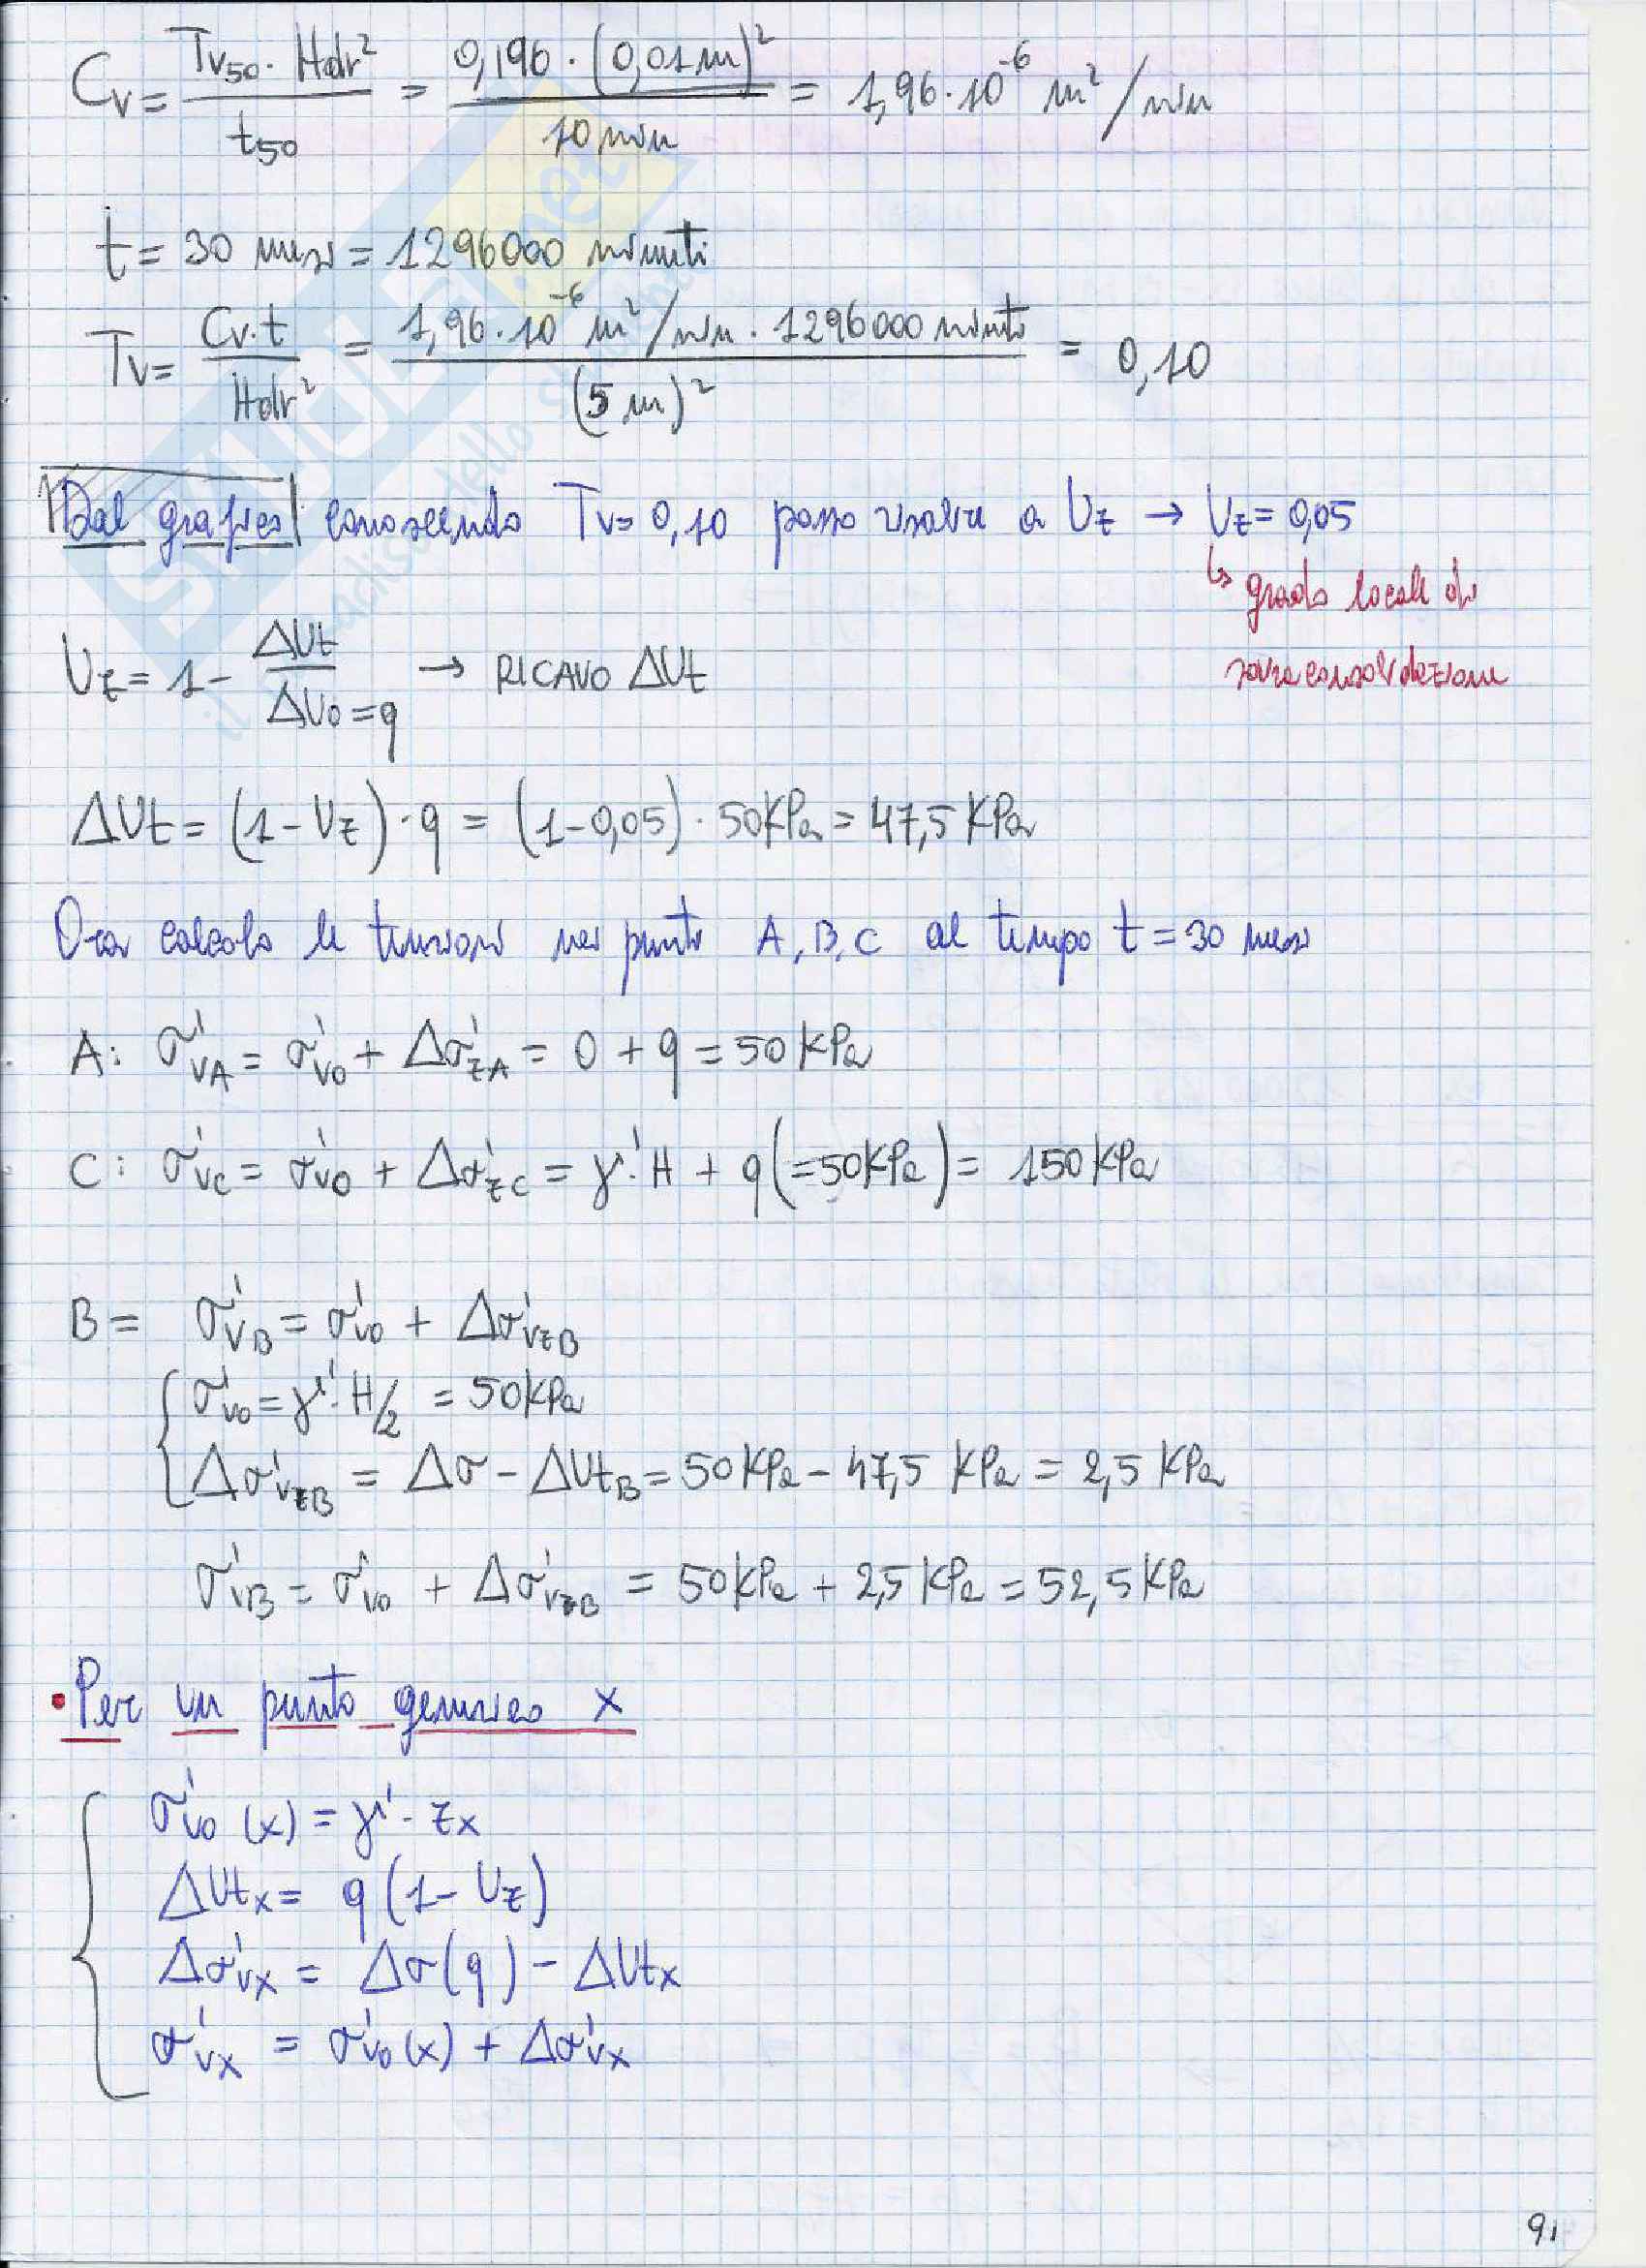 Cv = Tv50 · Hdr² / t50 = 0,196 · (0,01 m)² / 10 min = 1,96 · 10⁻⁶ m²/min
t = 30 mesi = 1296000 minuti
Tv = Cv · t / Hdr² = 1,96 · 10⁻⁶ m²/min · 1296000 minuti / (5 m)² = 0,10
Dal grafico conoscendo Tv = 0,10 posso risalire a Uz → Uz = 0,05
↳ grado locale di
sovraconsolidazione
Uz = 1 - ΔUt / ΔU0 = q → RICAVO ΔUt
ΔUt = (1 - Uz) · q = (1 - 0,05) · 50 KPa = 47,5 KPa
Ora calcolo le tensioni nei punti A, B, C al tempo t = 30 mesi
A: σ'vA = σ'v0 + Δσ'zA = 0 + q = 50 KPa
C: σ'vc = σ'v0 + Δσ'zc = γ' · H + q (= 50 KPa) = 150 KPa
B = σ'vB = σ'v0 + Δσ'vzB
σ'v0 = γ' · H/2 = 50 KPa
Δσ'vzB = Δσ - ΔUtB = 50 KPa - 47,5 KPa = 2,5 KPa
σ'vB = σ'v0 + Δσ'vzB = 50 KPa + 2,5 KPa = 52,5 KPa
• Per un punto generico x
σ'v0 (x) = γ' · zx
ΔUtx = q (1 - Uz)
Δσ'vx = Δσ (q) - ΔUtx
σ'vx = σ'v0 (x) + Δσ'vx
91